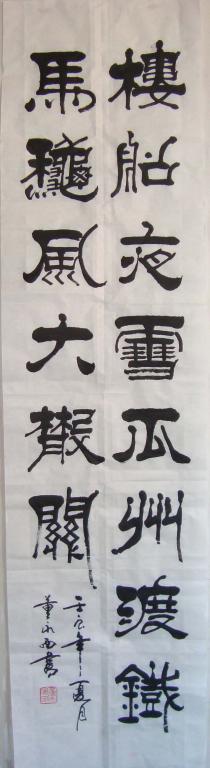 樓船夜雪瓜州渡鐵
馬龝風大散關
壬辰年夏月
董永西書